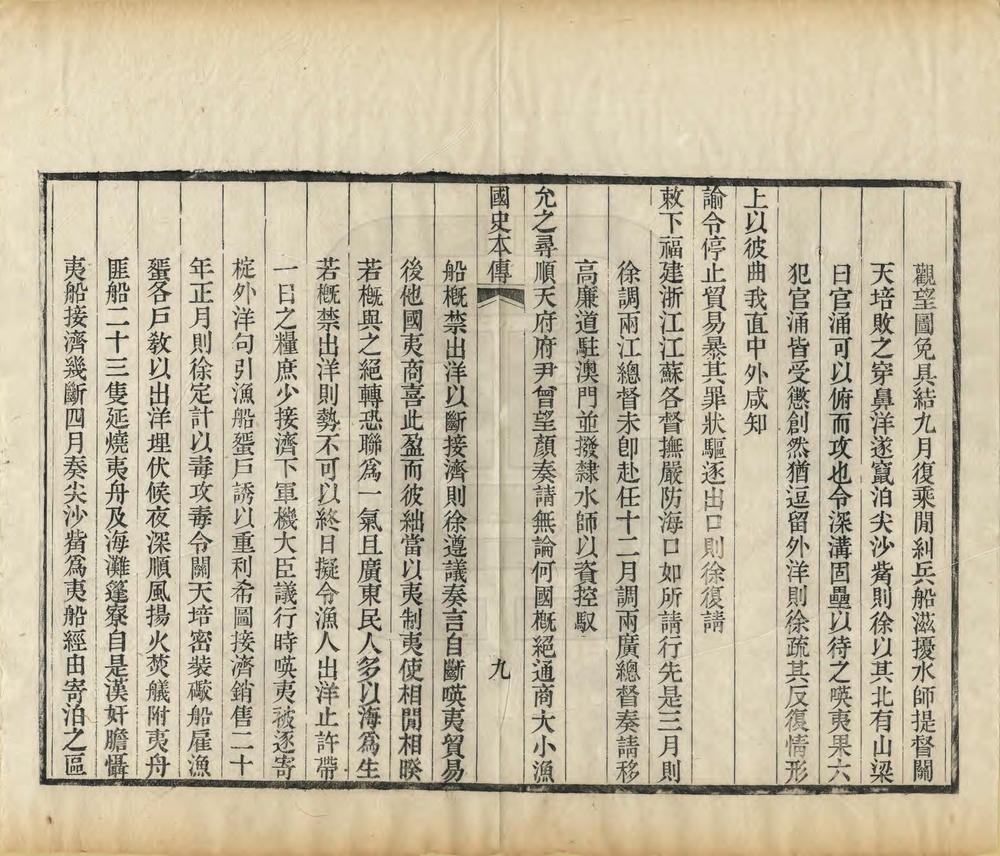 觀望圖免具結九月復乘閒糾兵船滋擾水師提督關
天培敗之穿鼻洋遂竄泊尖沙觜則徐以其北有山梁
曰官涌可以俯而攻也令深溝固壘以待之𠸄夷果六
犯官涌皆受懲創然猶逗留外洋則徐疏其反復情形
上以彼曲我直中外咸知
諭令停止貿易暴其罪狀驅逐出口則徐復請
敕下福建浙江江蘇各督撫嚴防海口如所請行先是三月則
徐調兩江總督未卽赴任十二月調兩廣總督奏請移
高廉道駐澳門並撥隸水師以資控馭
允之尋順天府府尹曾望顏奏請無論何國槪絕通商大小漁
國史本傳 九
船槪禁出洋以斷接濟則徐遵議奏言自斷𠸄夷貿易
後他國夷商喜此盈而彼絀當以夷制夷使相閒相暌
若槪與之絕轉恐聯爲一氣且廣東民人多以海爲生
若槪禁出洋則勢不可以終日擬令漁人出洋止許帶
一日之糧庶少接濟下軍機大臣議行時𠸄夷被逐寄
椗外洋句引漁船蜑戸誘以重利希圖接濟銷售二十
年正月則徐定計以毒攻毒令關天培密裝礮船雇漁
蜑各戸敎以出洋埋伏候夜深順風揚火焚艤附夷舟
匪船二十三隻延燒夷舟及海灘篷寮自是漢奸膽懾
夷船接濟幾斷四月奏尖沙觜爲夷船經由寄泊之區